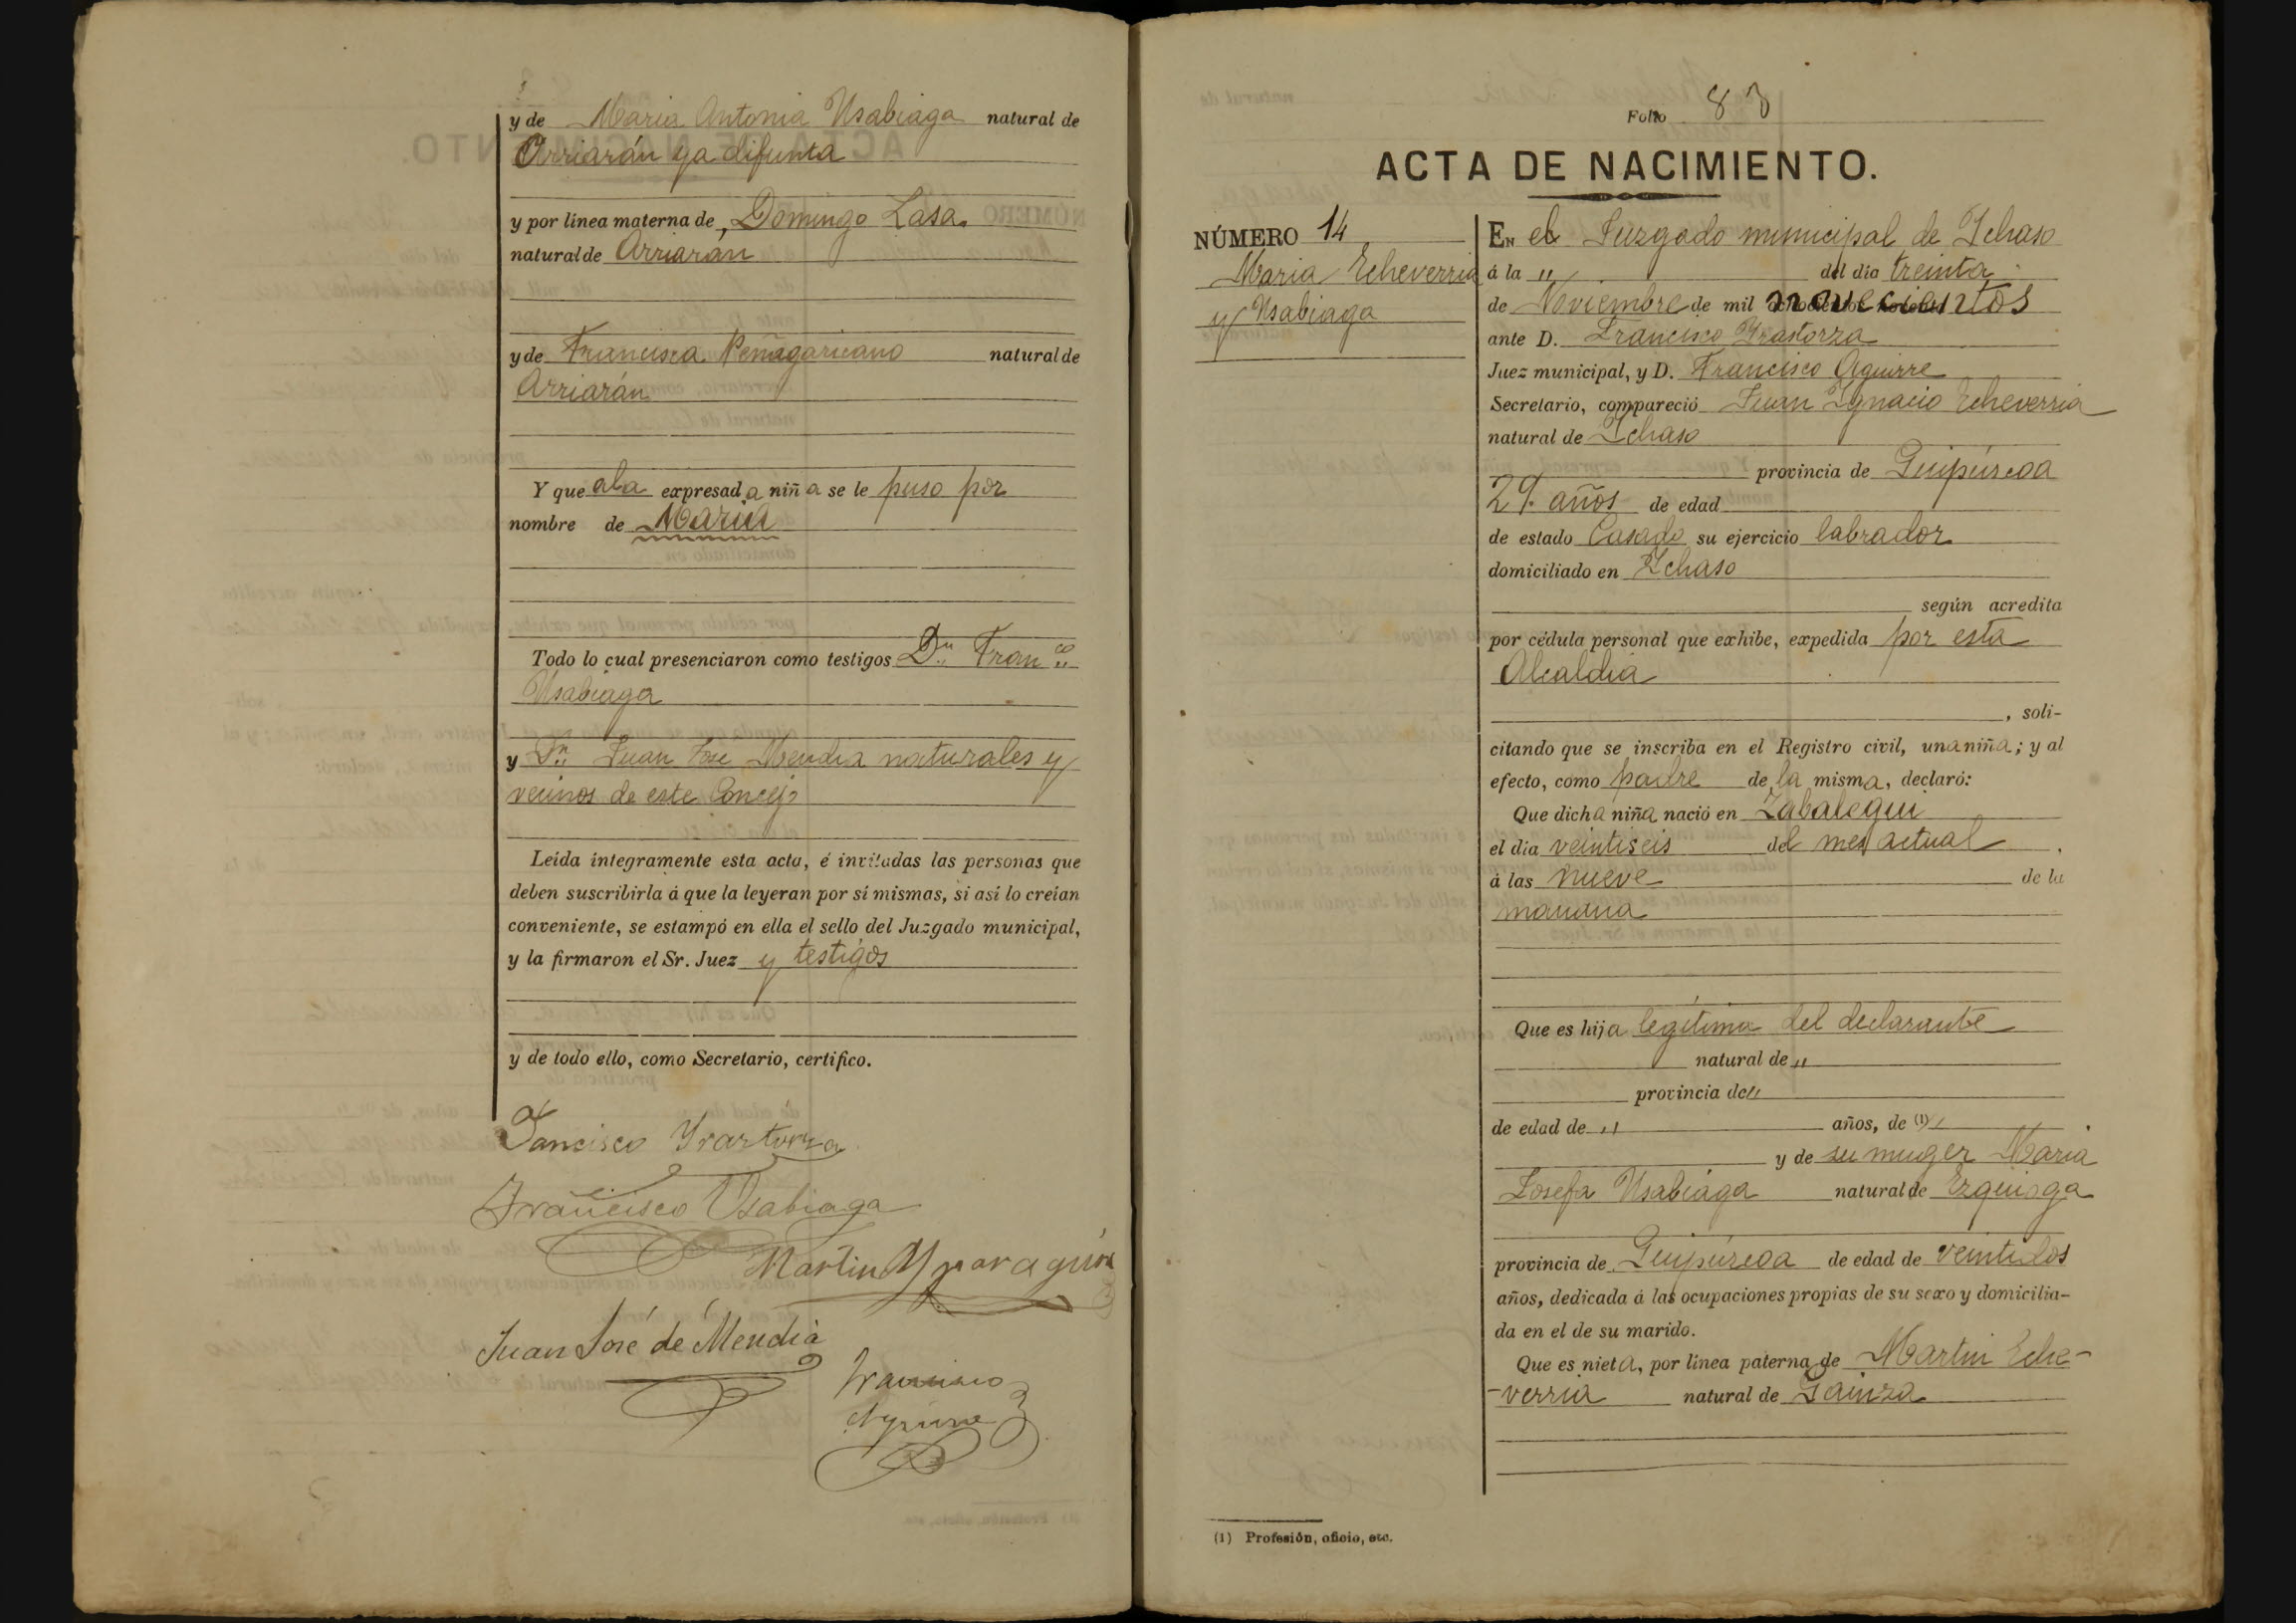 y de Maria Antonia Usabiaga natural de
Arriarán ya difunta
y por línea materna de, Domingo Lasa
natural de Arriarán
y de Francisca Peñagaricano natural de
Arriarán
Y que a la expresada niña se le puso por
nombre de Maria
Todo lo cual presenciaron como testigos Dn Franco
Usabiaga
y Dn Juan José Mendia naturales y
vecinos de este Concejo
Leída íntegramente esta acta, é invitadas las personas que
deben suscribirla á que la leyeran por sí mismas, si así lo creían
conveniente, se estampó en ella el sello del Juzgado municipal,
y la firmaron el Sr. Juez y testigos
y de todo ello, como Secretario, certifico.
Francisco Yrastorza
Francisco Usabiaga
Martin Yparaguirre
Juan José de Mendia
Francisco
Aguirre
Folio 83
ACTA DE NACIMIENTO.
NÚMERO 14
Maria Echeverria
y Usabiaga
EN el Juzgado municipal de Ichaso
á la " del día treinta
de Noviembre de mil novecientos
ante D. Francisco Yrastorza
Juez municipal, y D. Francisco Aguirre
Secretario, compareció Juan Ignacio Echeverria
natural de Ichaso
provincia de Guipúzcoa
29. años de edad
de estado Casado su ejercicio labrador
domiciliado en Ichaso
según acredita
por cédula personal que exhibe, expedida por esta
Alcaldia
, soli-
citando que se inscriba en el Registro civil, una niña; y al
efecto, como padre de la misma, declaró:
Que dicha niña nació en Zabalegui
el día veintiseis del mes actual
á las nueve de la
mañana
Que es hija legítima del declarante
natural de "
provincia de "
de edad de " años, de (1) "
y de su muger Maria
Josefa Usabiaga natural de Ezquioga
provincia de Guipúzcoa de edad de veintidos
años, dedicada á las ocupaciones propias de su sexo y domicilia-
da en el de su marido.
Que es nieta, por línea paterna de Martin Eche-
-verria natural de Gainza
(1) Profesión, oficio, etc.